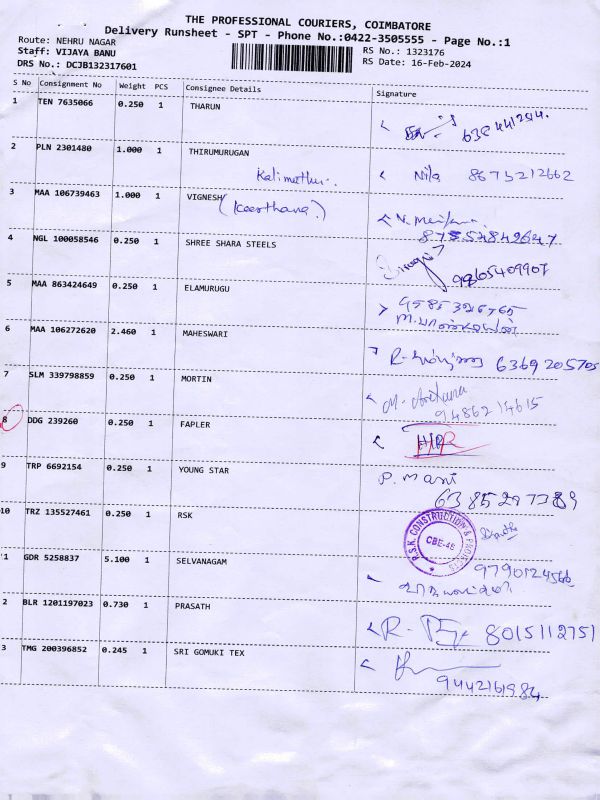 THE PROFESSIONAL COURIERS, COIMBATORE
Delivery Runsheet - SPT - Phone No.:0422-3505555 - Page No.:1
Route: NEHRU NAGAR
RS No.: 1323176
Staff: VIJAYA BANU
RS Date: 16-Feb-2024
DRS No.: DCJB132317601
S No Consignment No Weight PCS Consignee Details Signature
1 TEN 7635066 0.250 1 THARUN
2 PLN 2301480 1.000 1 THIRUMURUGAN
< Nila 8675212662
3 MAA 106739463 1.000 1 VIGNESH (Keerthana)
4 NGL 100058546 0.250 1 SHREE SHARA STEELS
9865409907
5 MAA 863424649 0.250 1 ELAMURUGU
6 MAA 106272620 2.460 1 MAHESWARI
6369205705
7 SLM 339798859 0.250 1 MORTIN
9486214615
8 DDG 239260 0.250 1 FAPLER
9 TRP 6692154 0.250 1 YOUNG STAR P. Mani
10 TRZ 135527461 0.250 1 RSK
R.S.K. CONSTRUCTION & PROJECTS
CBE-45
'1 GDR 5258837 5.100 1 SELVANAGAM
2 BLR 1201197023 0.730 1 PRASATH
8015112751
3 TMG 200396852 0.245 1 SRI GOMUKI TEX
9442161984